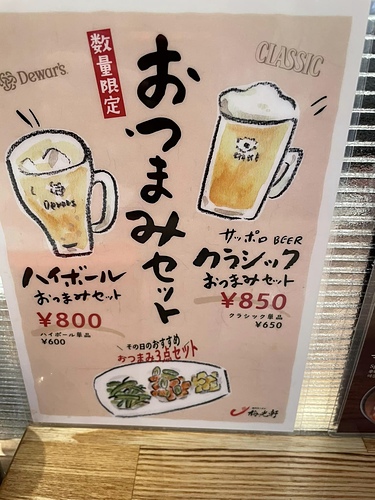 Dewar's
数量限定
CLASSIC
おつまみセット
Dewars
ハイボール
おつまみセット
¥800
ハイボール単品
¥600
サッポロ BEER
クラシック
おつまみセット
¥850
クラシック単品
¥650
その日のおすすめ
おつまみ3点セット